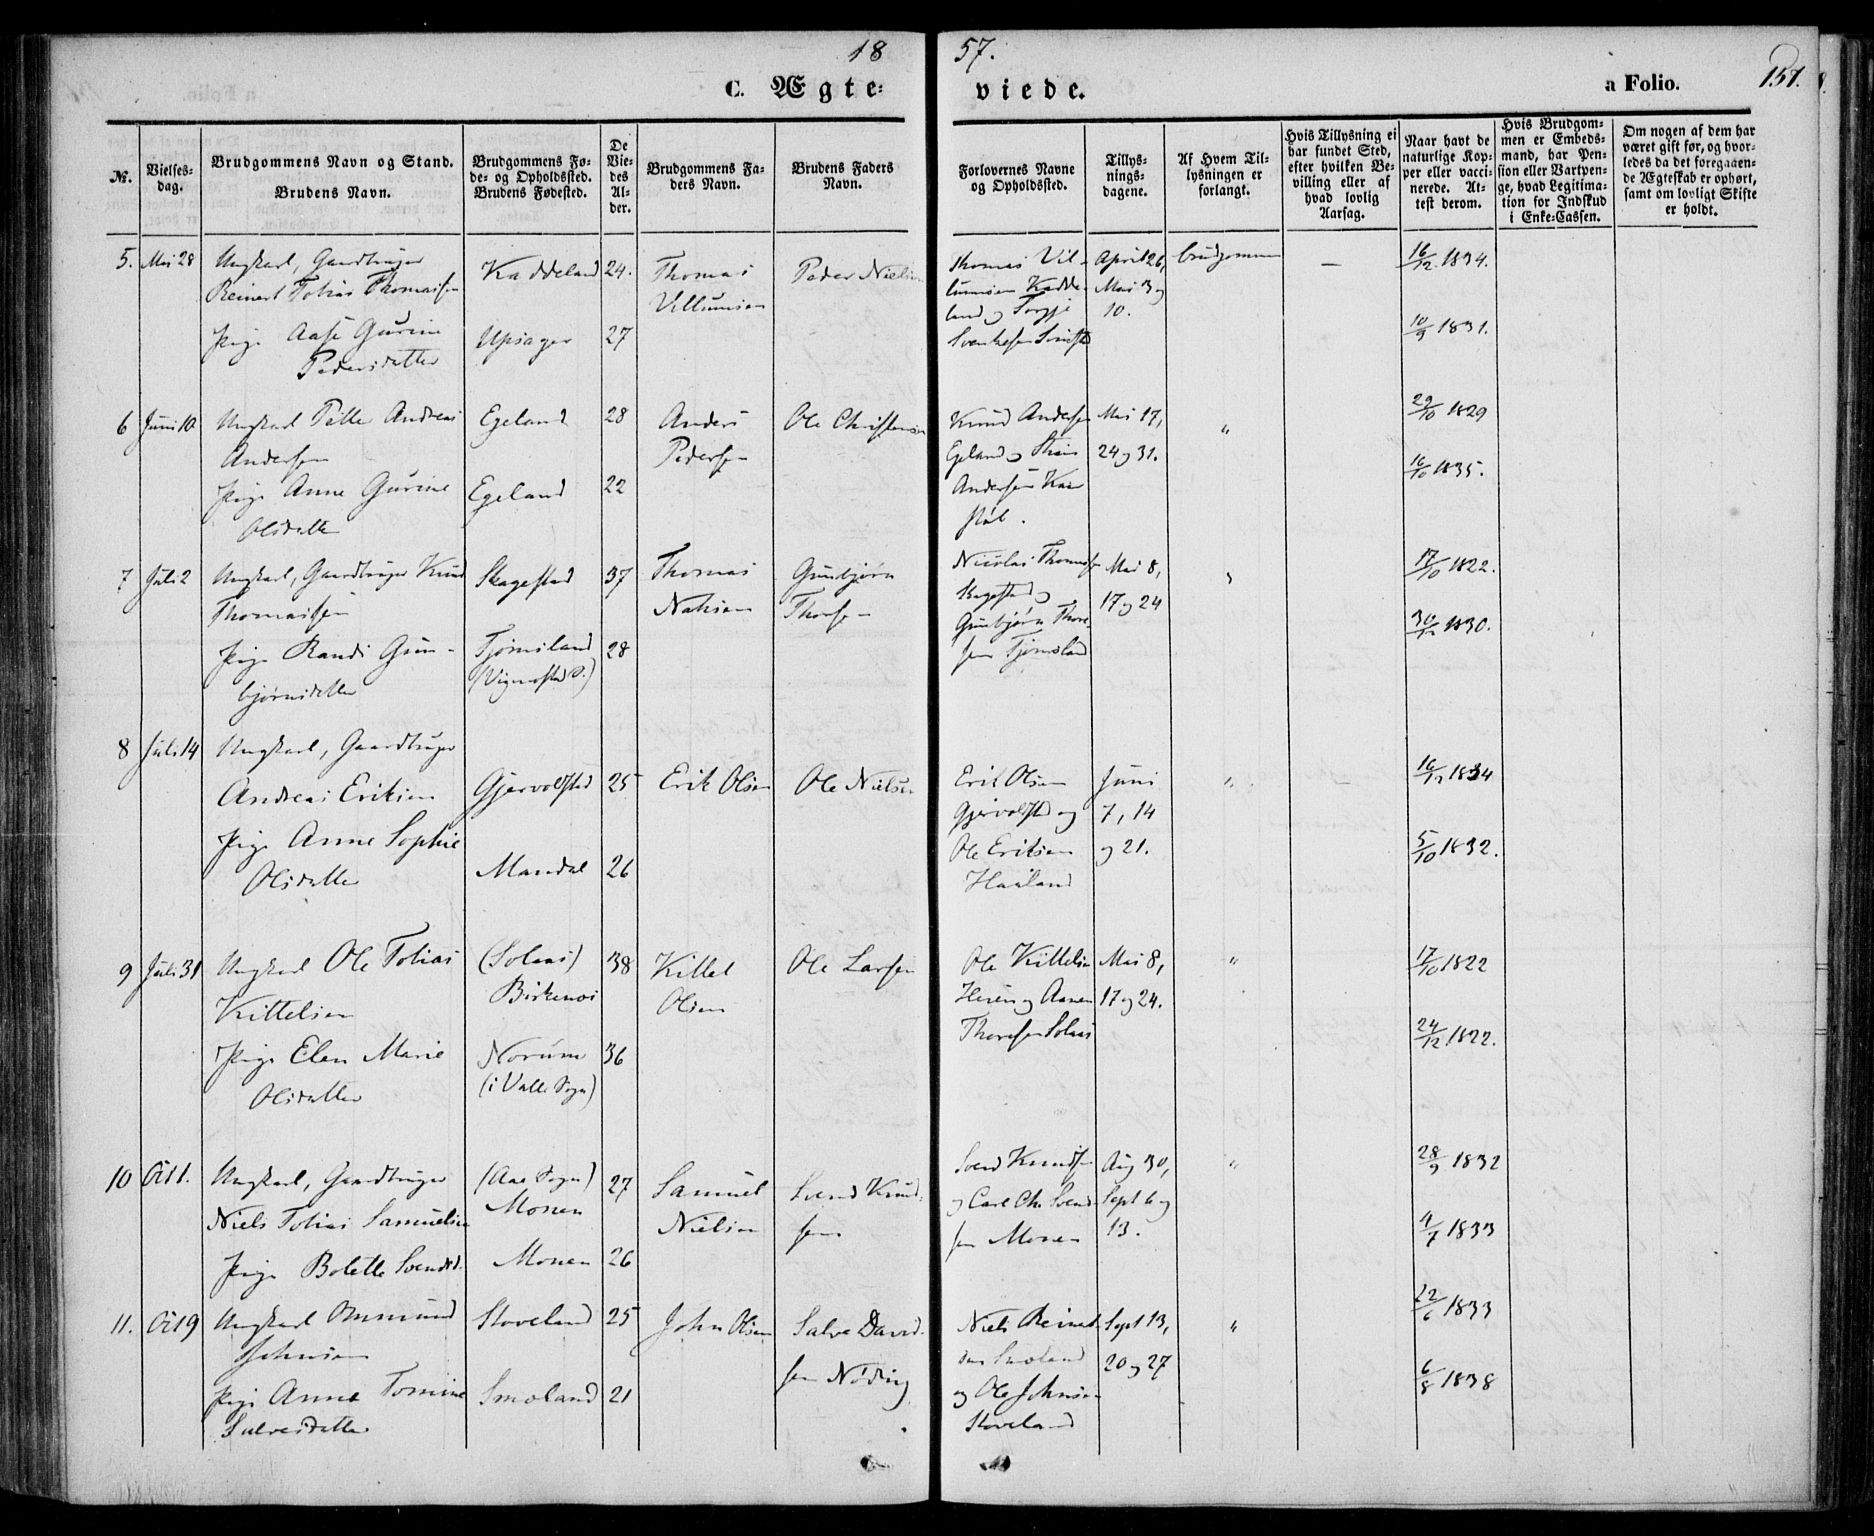 18 57.
C. Ægte- viede. a Folio. 151.
No.
Vielses-
dag.
Brudgommens Navn og Stand.
Brudens Navn.
Brudgommens Fø-
de- og Opholdssted.
Brudens Fødested.
De
Vie-
des
Al-
der.
Brudgommens Fa-
ders Navn.
Brudens Faders
Navn.
Forlovernes Navne
og Opholdssted.
Tillys-
nings-
dagene.
Af Hvem Til-
lysningen er
forlangt.
Hvis Tillysning ei
har fundet Sted,
efter hvilken Be-
villing eller af
hvad lovlig
Aarsag.
Naar havt de
naturlige Kop-
per eller vacci-
nerede. At-
test derom.
Hvis Brudgom-
men er Embeds-
mand, har Pen-
sion eller Vartpen-
ge, hvad Legitima-
tion for Indskud
i Enke-Cassen.
Om nogen af dem har
været gift før, og hvor-
ledes da det foregaaen-
de Ægteskab er ophørt,
samt om lovligt Skifte
er holdt.
5. Mai 28 Ungkarl, Gaardbruger
Reinert Tobias Thomassen
Kaddeland 24. Thomas
Villumsen
Peder Nielsen
Thomas Vil-
lumsen Kadde-
land og Torgje
Svenke­sen
April 26,
Mai 3 og
10.
brudgommen — 16/12 1834.
Pige Aase Gurine
Pedersdatter
Upsager 27
10/9 1831.
6 Juni 10 Ungkarl Pelle Andreas
Andersen
Egeland 28 Anders
Pedersen
Ole Christensen
Knud Andersen
Egeland og
Andersen
Mai 17,
24 og 31.
" 29/10 1829
Pige Anne Gurine
Olsdatter
Egeland 22
16/10 1835.
7 Juli 2 Ungkarl, Gaardbruger Knud
Thomassen
Skagestad 37 Thomas
Gunbjørn
Thorsen
Nicolai Thomassen
Skagestad og
Gunbjørn Thore
sen Tjomsland
Mai 8,
17 og 24
" 17/10 1822.
Pige Randi Gun-
bjørnsdatter
Tjomsland
(Vigmostad S.)
28
30/12 1830.
8 Juli 14 Ungkarl, Gaardbruger
Andreas Eriksen
Gjervoldstad 25 Erik Olsen Ole Nielsen
Erik Olsen
Gjervoldstad og
Ole Eriksen
Haaland
Juni
7, 14
og 21.
" — 16/12 1834
Pige Anne Sophie
Olsdatter
Mandal 26
5/10 1832.
9 Juli 31 Ungkarl Ole Tobias
Kittelsen
(Solaas)
Birkenes
38 Kittel
Olsen
Ole Larsen
Ole Kittelsen
og Aanen
Thoresen Solaas
Mai 8,
17 og 24.
" 17/10 1822
Pige Elen Marie
Olsdatter
Norum
(i Valle Sogn)
36
24/12 1822.
10 Oct 1. Ungkarl, Gaardbruger
Niels Tobias Samuelsen
(Aas Sogn)
Monen
27 Samuel
Nielsen
Svend Knud-
sen
Svend Knudsen
og Carl Chr Svend-
sen Monen
Aug 30,
Sept 6 og
13.
" 28/9 1832
Pige Bolette Svendsd.
Monen 26
4/7 1833
11. Oct 9 Ungkarl Ommund
Johnsen
Stoveland 25 John Olsen
Salve David-
sen Nøding
Niels Reinert
sen Smoland
og Ole Johnsen
Stoveland
Sept 13,
20 og 27
" 22/6 1833
Pige Anne Tomine
Salvesdatter
Smoland 21
6/8 1838